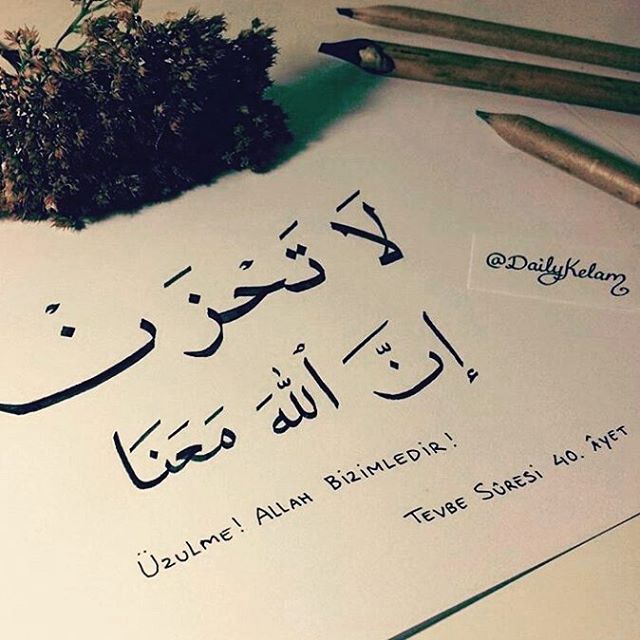 لَا تَحْزَنْ
إِنَّ ٱللَّهَ مَعَنَا
@DailyKelam
ÜZÜLME! ALLAH BİZİMLEDİR!
TEVBE SÛRESİ 40. ÂYET